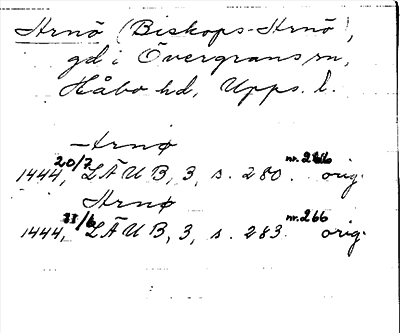 Arnö (Biskops-Arnö),
gd i Övergrans sn,
Håbo hd, Upps. l.
Arnø
1444, 20/7 ZÄUB, 3, s. 280. nr. 266 orig.
Arnø
1444, 23/6 ZÄUB, 3, s. 283. nr. 266 orig.